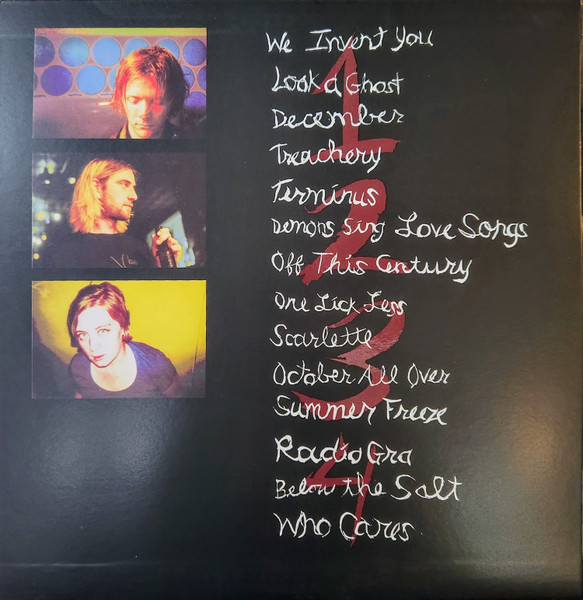 We Invent You
Look a Ghost
December
Treachery
Terminus
Demons Sing Love Songs
Off This Century
One Lick Less
Scarlette
October All Over
Summer Freeze
Radio Gra
Below the Salt
Who Cares
1
2
3
4